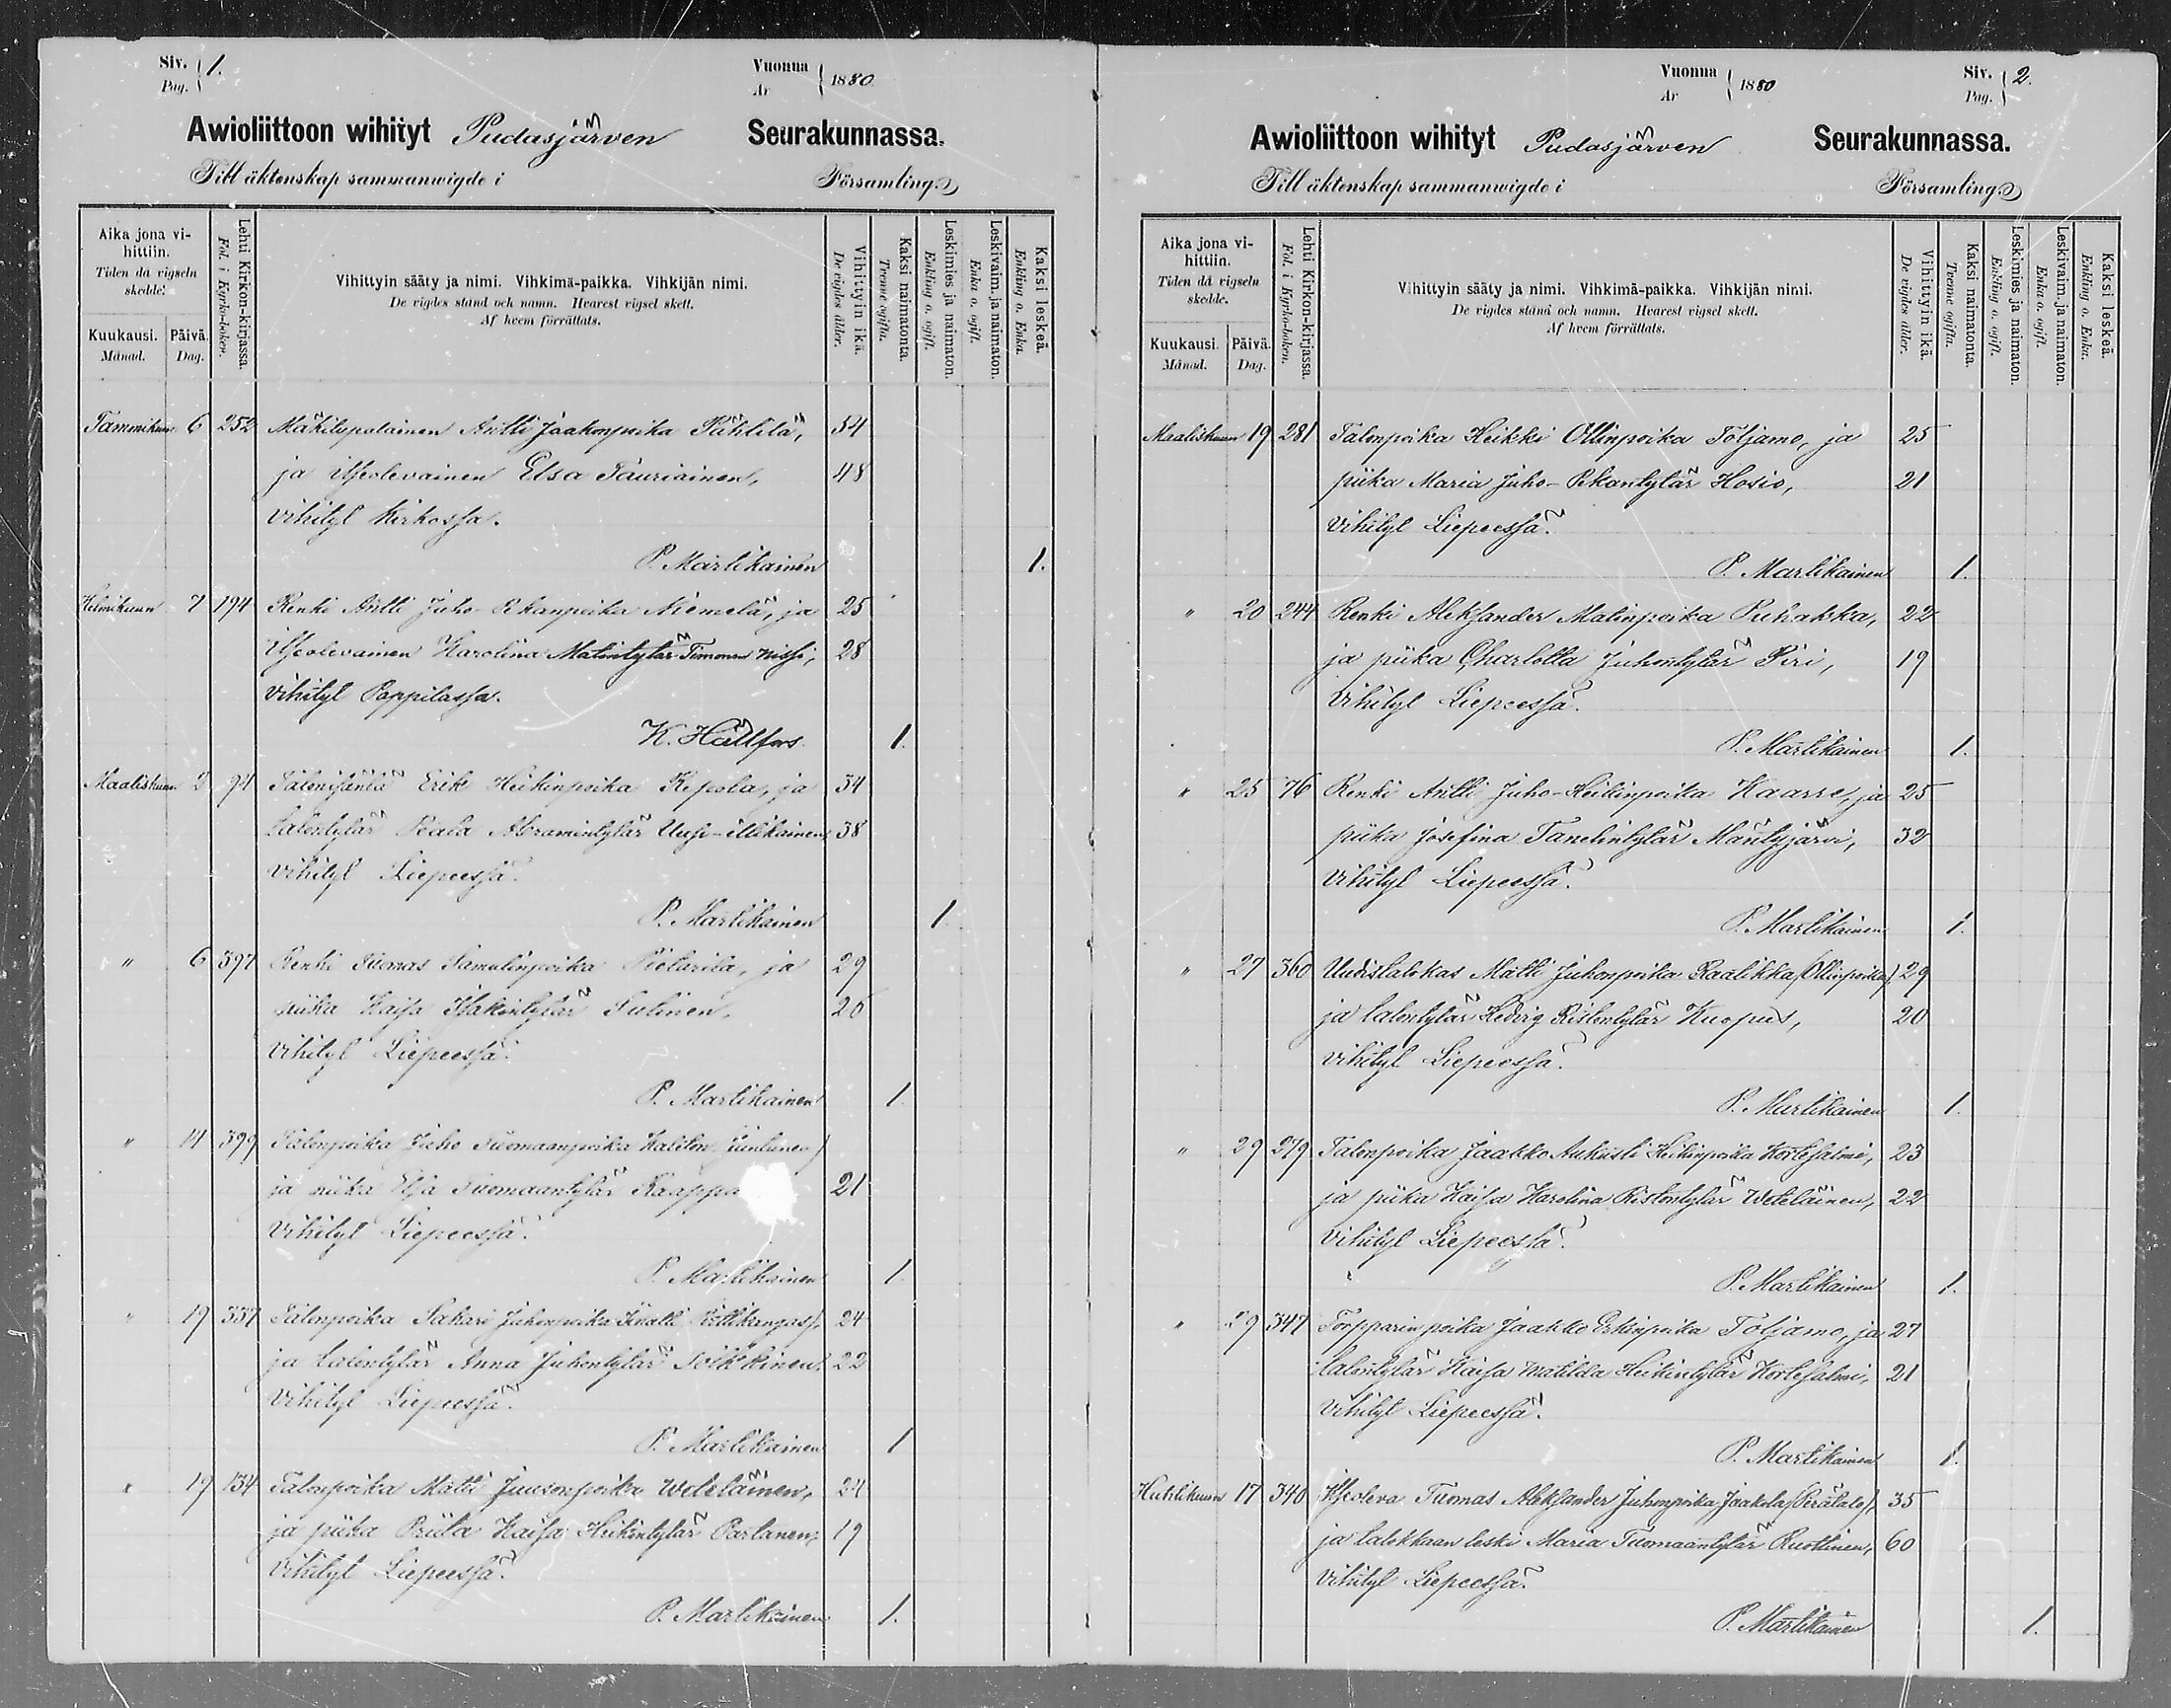 Siv. 1.
Pag.
Vuonna 1880
År
Awioliittoon wihityt Pudasjärven Seurakunnassa.
Till äktenskap sammanwigde i Församling.
Aika jona vi-
hittiin.
Tiden då vigseln
skedde.
Kuukausi.
Månad.
Päivä.
Dag.
Lehti Kirkon-kirjassa.
Fol. i Kyrko-boken.
Vihittyin sääty ja nimi. Vihkimä-paikka. Vihkijän nimi.
De vigdes stånd och namn. Hvarest vigsel skett.
Af hvem förrättats.
Vihittyin ikä.
De vigdes ålder.
Kaksi naimatonta.
Tvenne ogifta.
Leskimies ja naimaton.
Enkling o. ogift.
Leskivaim. ja naimaton.
Enka o. ogift.
Kaksi leskeä.
Enkling o. Enka.
Tammikuun 6 252 Mäkitupalainen Antti Jaakonpoika Pähtilä, 54
ja itseolevainen Elsa Tauriainen, 48
vihityt kirkossa.
P. Martikainen 1.
Helmikuun 7 194 Renki Antti Juho-Pekanpoika Niemelä, ja 25
itseolevainen Karolina Matintytär Timonen Nissi, 28
vihityt Pappilassa.
K. Hällfors 1.
Maaliskuun 2 94 Talonisäntä Erik Heikinpoika Kipola, ja 34
talontytär Beata Abramintytär Uusi-Illikainen, 38
vihityt Liepeessä.
P. Martikainen 1.
" 6 397 Renki Tuomas Samulinpoika Pietarila, ja 29
piika Kaisa Isakintytär Sutinen, 26
vihityt Liepeessä.
P. Martikainen 1
" 14 399 Talonpoika Juho Tuomaanpoika
ja piika Elsa Tuomaantytär Kaappa 21
vihityt Liepeessä.
P. Martikainen 1.
" 19 337 Talonpoika Sakari Juhonpoika 24
ja talontytär Anna Juhontytär Soikkinen, 22
vihityt Liepeessä.
P. Martikainen 1
" 19 134 Talonpoika Matti Juusonpoika Weteläinen, 24
ja piika Priita Kaisa Heikintytär Partanen, 19
vihityt Liepeessä.
P. Martikainen 1.
Vuonna 1880
År
Siv. 2.
Pag.
Awioliittoon wihityt Pudasjärven Seurakunnassa.
Till äktenskap sammanwigde i Församling.
Aika jona vi-
hittiin.
Tiden då vigseln
skedde.
Kuukausi.
Månad.
Päivä.
Dag.
Lehti Kirkon-kirjassa.
Fol. i Kyrko-boken.
Vihittyin sääty ja nimi. Vihkimä-paikka. Vihkijän nimi.
De vigdes stånd och namn. Hvarest vigsel skett.
Af hvem förrättats.
Vihittyin ikä.
De vigdes ålder.
Kaksi naimatonta.
Tvenne ogifta.
Leskimies ja naimaton.
Enkling o. ogift.
Leskivaim. ja naimaton.
Enka o. ogift.
Kaksi leskeä.
Enkling o. Enka.
Maaliskuun 19 281 Talonpoika Heikki Ollinpoika Toljamo, ja 25
piika Maria Juho-Pekantytär Hosio, 21
vihityt Liepeessä.
P. Martikainen 1.
" 20 244 Renki Aleksander Matinpoika Puhakka, 22
ja piika Charlotta Juhontytär Piri, 19
vihityt Liepeessä.
P. Martikainen 1.
" 25 76 Renki Antti Juho-Heikinpoika Kaarre, ja 25
piika Josefina Tanelintytär Mäntyjärvi, 32
vihityt Liepeessä.
P. Martikainen 1.
" 27 360 Uudistalokas Matti Juhonpoika Raatikka (Ollinpoika), 29
ja talontytär Hedvig Ristontytär Kuopus, 20
vihityt Liepeessä.
P. Martikainen 1.
" 29 279 Talonpoika Jaakko Aukusti Heikinpoika Kortesalmi, 23
ja piika Kaisa Karolina Ristontytär Weteläinen, 22
vihityt Liepeessä.
P. Martikainen 1.
" 29 347 Torpparin poika Jaakko Erkinpoika Toljamo, ja 27
talontytär Kaisa Matilda Heikintytär Kortesalmi, 21
vihityt Liepeessä.
P. Martikainen 1.
Huhtikuun 17 340 Itseoleva Tuomas Aleksander Juhonpoika Jaakola (Perätalo), 35
ja talokkaan leski Maria Tuomaantytär Ruottinen, 60
vihityt Liepeessä.
P. Martikainen 1.